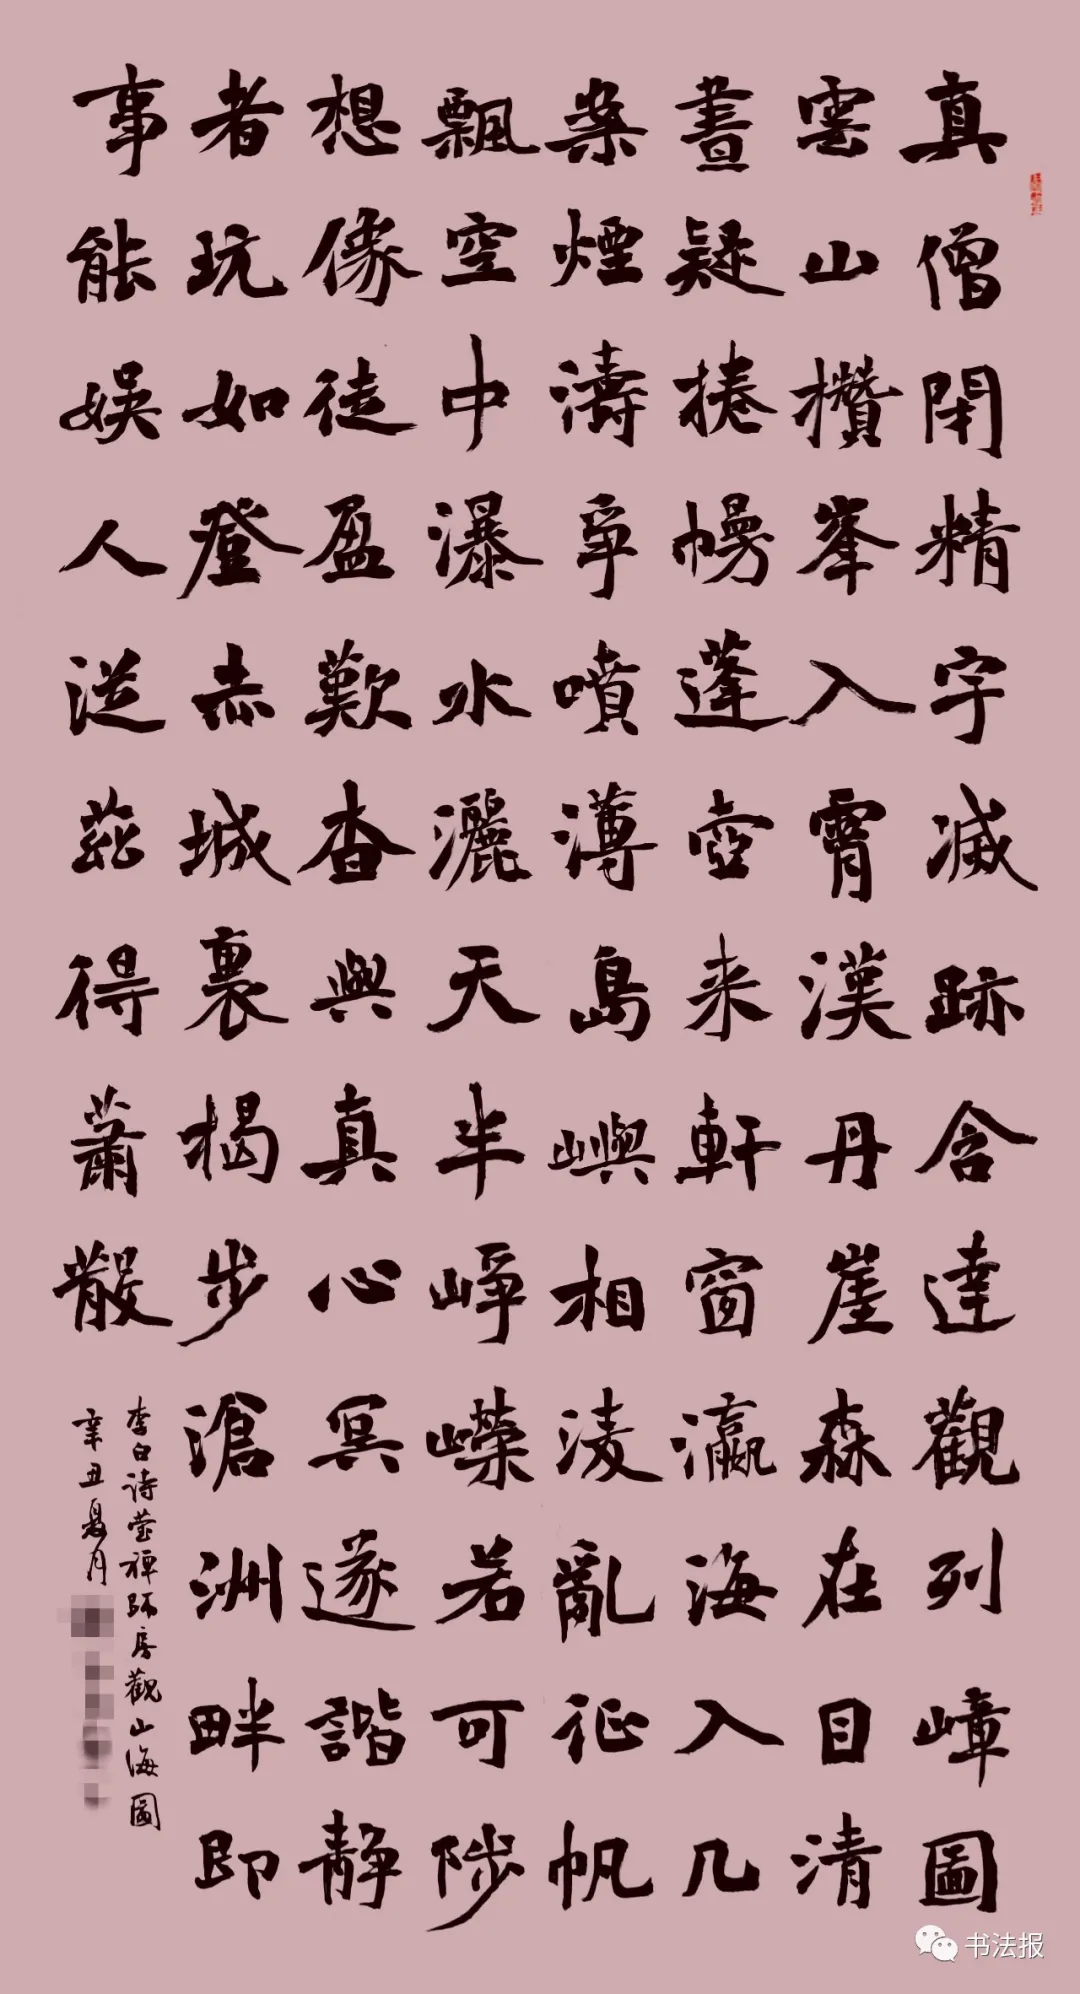 真僧閉精宇滅跡含達觀列嶂圖
雲山攢峯入霄漢丹崖森在目清
晝疑捲幌蓬壺来軒窗瀛海入几
案煙濤爭噴薄島嶼相淩亂征帆
飄空中瀑水灑天半崢嶸若可陟
想像徒盈歎杳與真心冥遂諧静
者玩如登赤城裏揭步滄洲畔即
事能娱人從茲得蕭散
李白诗瑩禅師房觀山海圖
辛丑夏月
书法报